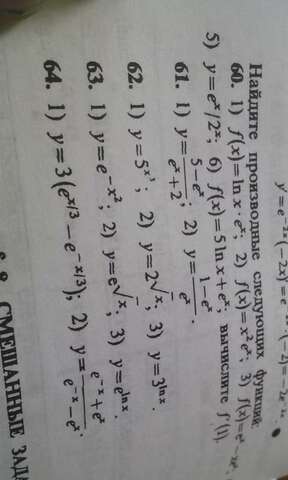 y = e⁻²ˣ(−2x) = −2e⁻²ˣ
Найдите производные следующих функций:
60. 1) f(x) = ln x · eˣ; 2) f(x) = x²eˣ; 3) f(x) = eˣ
5) y = eˣ/2ˣ; 6) f(x) = 5 ln x + eˣ; вычислите f′(1).
61. 1) y = (5 − eˣ)/(eˣ + 2); 2) y = (1 − eˣ)/eˣ.
62. 1) y = 5^(x³); 2) y = 2^(√x); 3) y = 3^(ln x).
63. 1) y = e^(−x²); 2) y = e^(√x); 3) y = e^(ln x).
64. 1) y = 3(e^(x/3) − e^(−x/3)); 2) y = (e⁻ˣ + eˣ)/(e⁻ˣ − eˣ).
СМЕШАННЫЕ ЗАДА